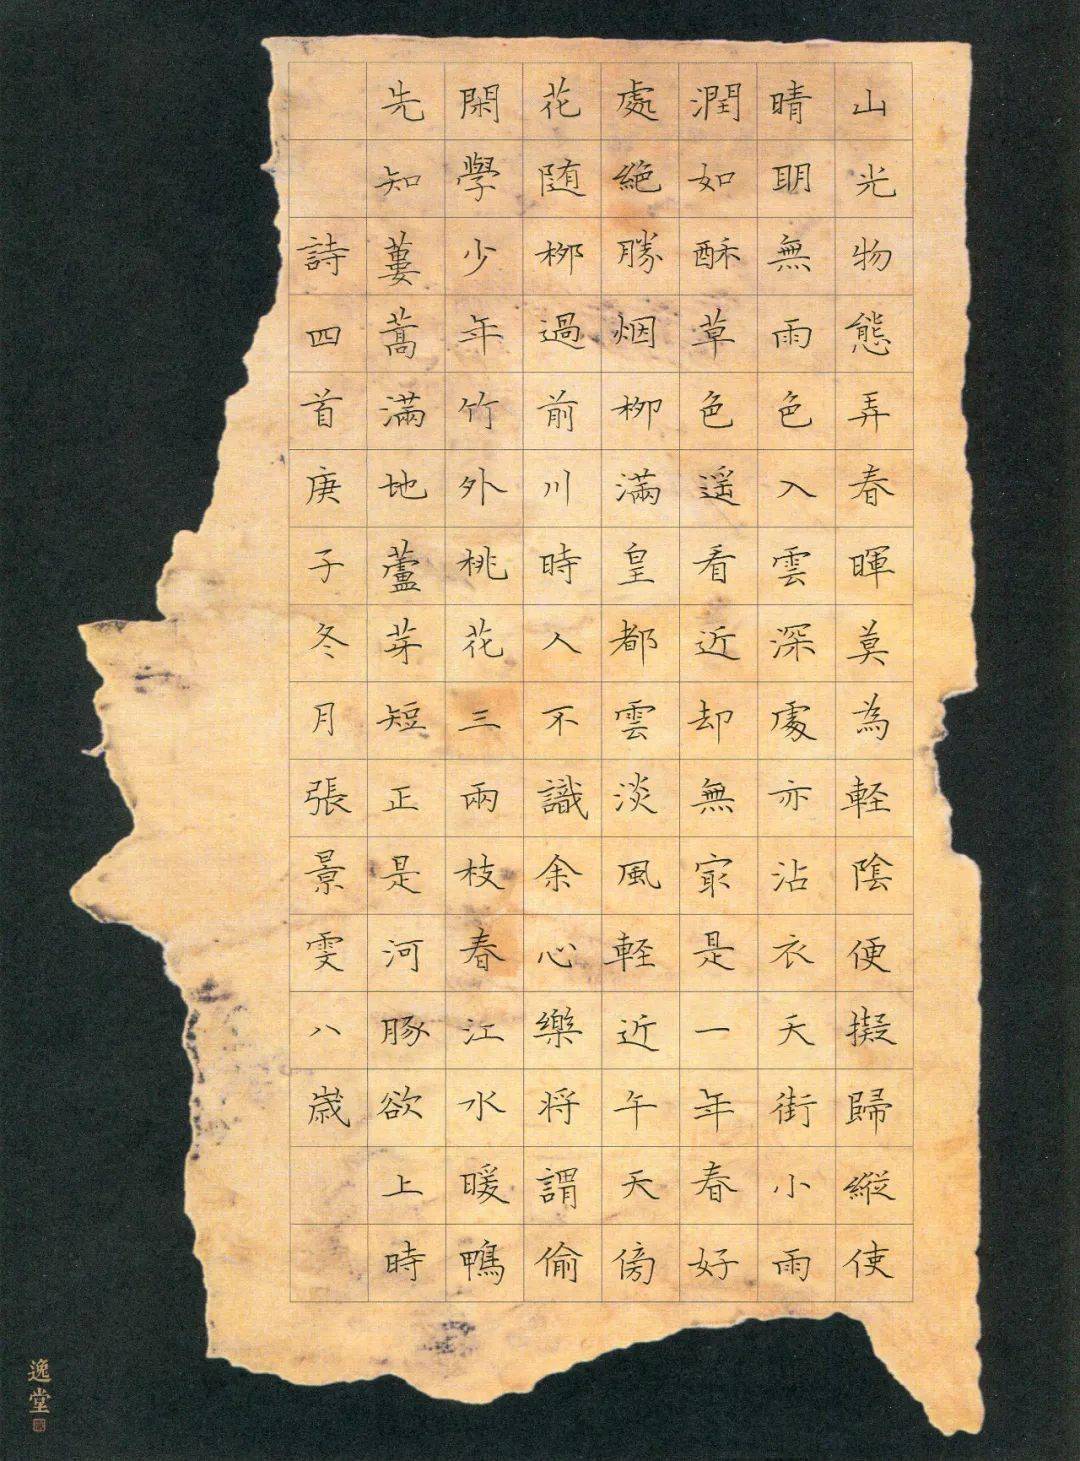 山光物態弄春暉莫為軽陰便擬歸縦使
晴明無雨色入雲深處亦沾衣天街小雨
潤如酥草色遥看近却無冣是一年春好
處絶勝烟柳滿皇都雲淡風軽近午天傍
花随柳過前川時人不識余心樂将謂偷
閑學少年竹外桃花三兩枝春江水暖鴨
先知蔞蒿滿地蘆芽短正是河豚欲上時
詩四首庚子冬月張景雯八歳
逸堂